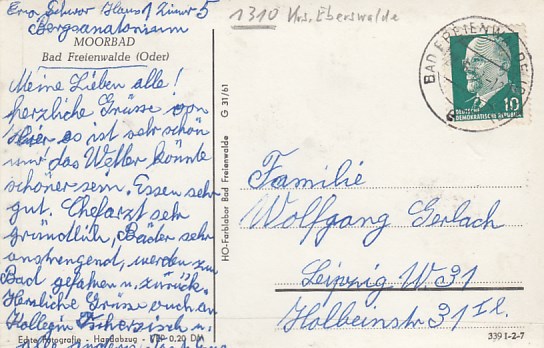 Haus 1 Zimer 5
Bergsanatorium
MOORBAD
Bad Freienwalde (Oder)
Meine Lieben alle!
herzliche Grüsse von
hier es ist sehr schön
nur das Wetter könnte
schöner sein. Essen sehr
gut. Chefarzt sehr
gründlich, Bäder sehr
anstrengend, werden zum
Bad gefahren u. zurück.
Herzliche Grüsse auch an
Kollegin u.
Echte Fotografie - Handabzug - EVP 0,20 DM
HO-Farblabor Bad Freienwalde G 31/61
1310 Krs. Eberswalde
BAD FREIENWALDE
10
DEUTSCHE
DEMOKRATISCHE REPUBLIK
Familie
Wolfgang Gerlach
Leipzig W 31
Holbeinstr. 31 II.
339 1-2-7